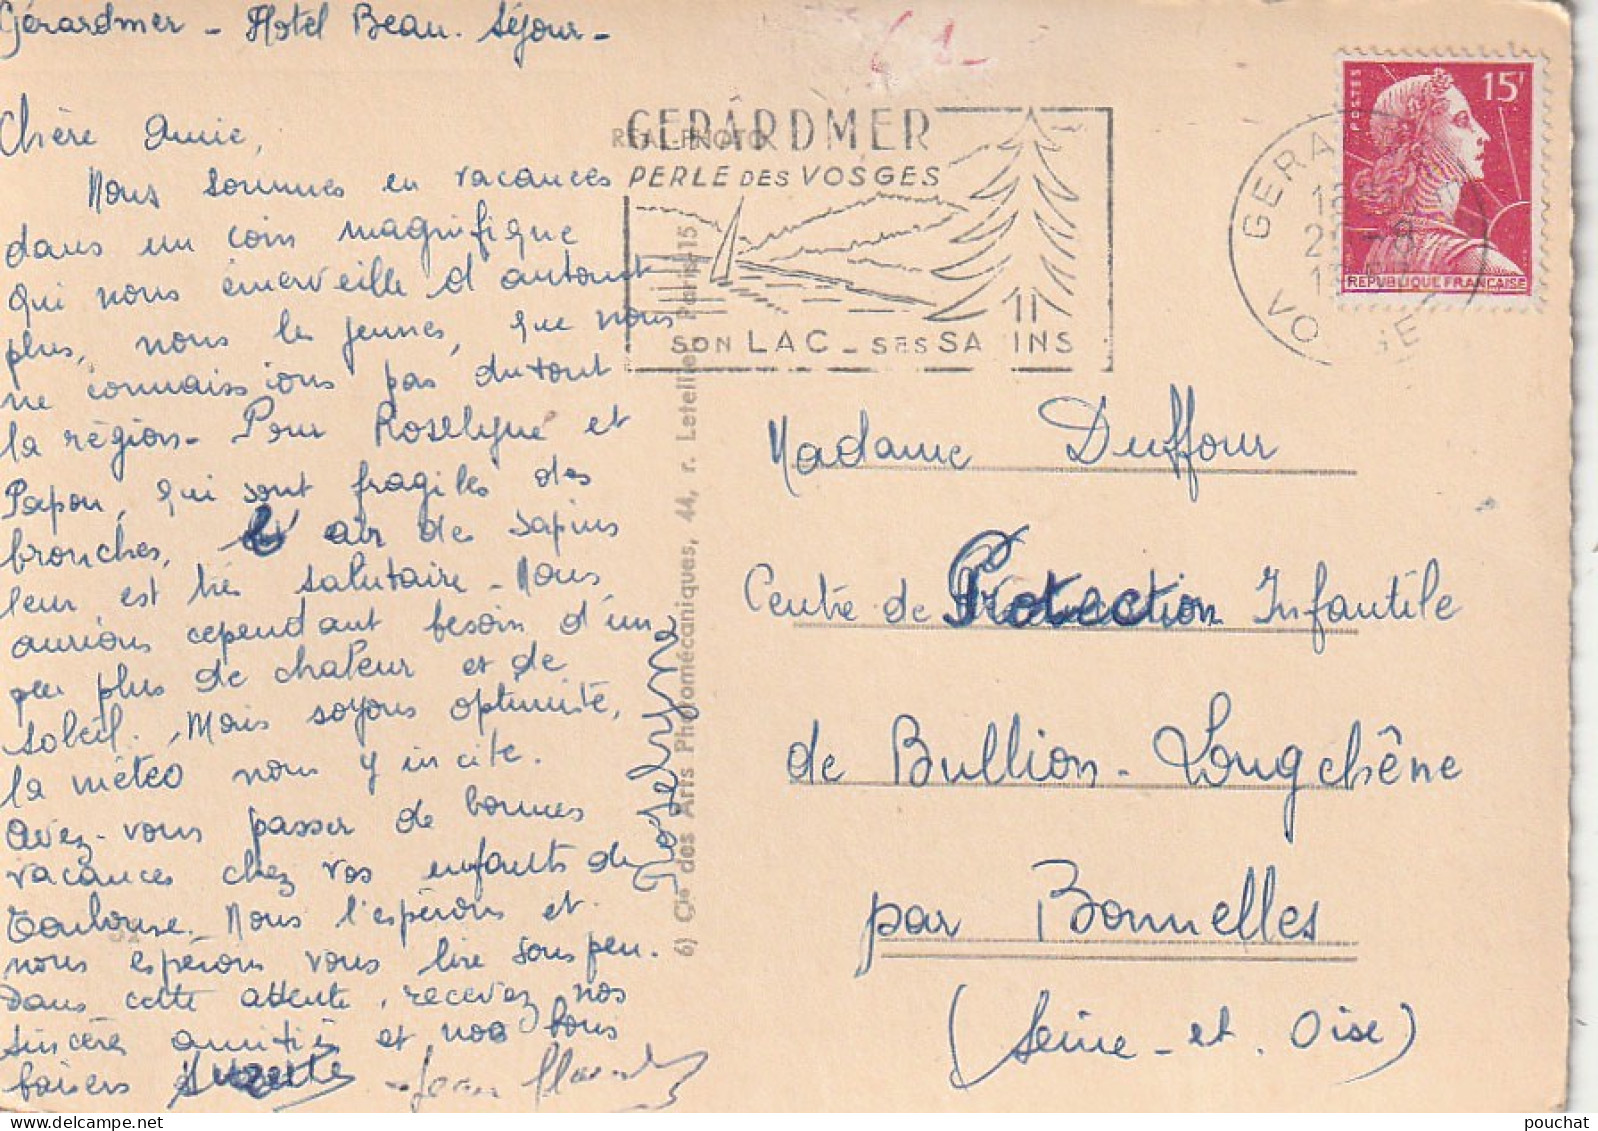 Gérardmer - Hotel Beau. Séjour -
Chère Amie,
Nous sommes en vacances
dans un coin magnifique
qui nous émerveille d'autant
plus, nous les jeunes, que nous
ne connaissions pas du tout
la région - Pour Roselyne et
Papou, qui sont fragiles des
bronches, air de sapins
leur est très salutaire - Nous
aurions cependant besoin d'un
peu plus de chaleur et de
soleil. Mais soyons optimiste,
la météo nous y incite.
Avez-vous passer de bonnes
vacances chez vos enfants de
Toulouse. Nous l'espérons et
nous espérons vous lire sous peu.
Dans cette attente, recevez nos
sincère amitiés et nos bons
baisers
Jean
Roselyne
REAL-PHOTO
6) Cie des Arts Photomécaniques, 44, r. Letellier Paris-15
GERARDMER
PERLE DES VOSGES
SON LAC - SES SA INS
GERA
VO GE
POSTES
15F
REPUBLIQUE FRANÇAISE
Madame Duffour
Centre de Protection Infantile
de Bullion - Longchêne
par Bonnelles
(Seine - et - Oise)
pouchat